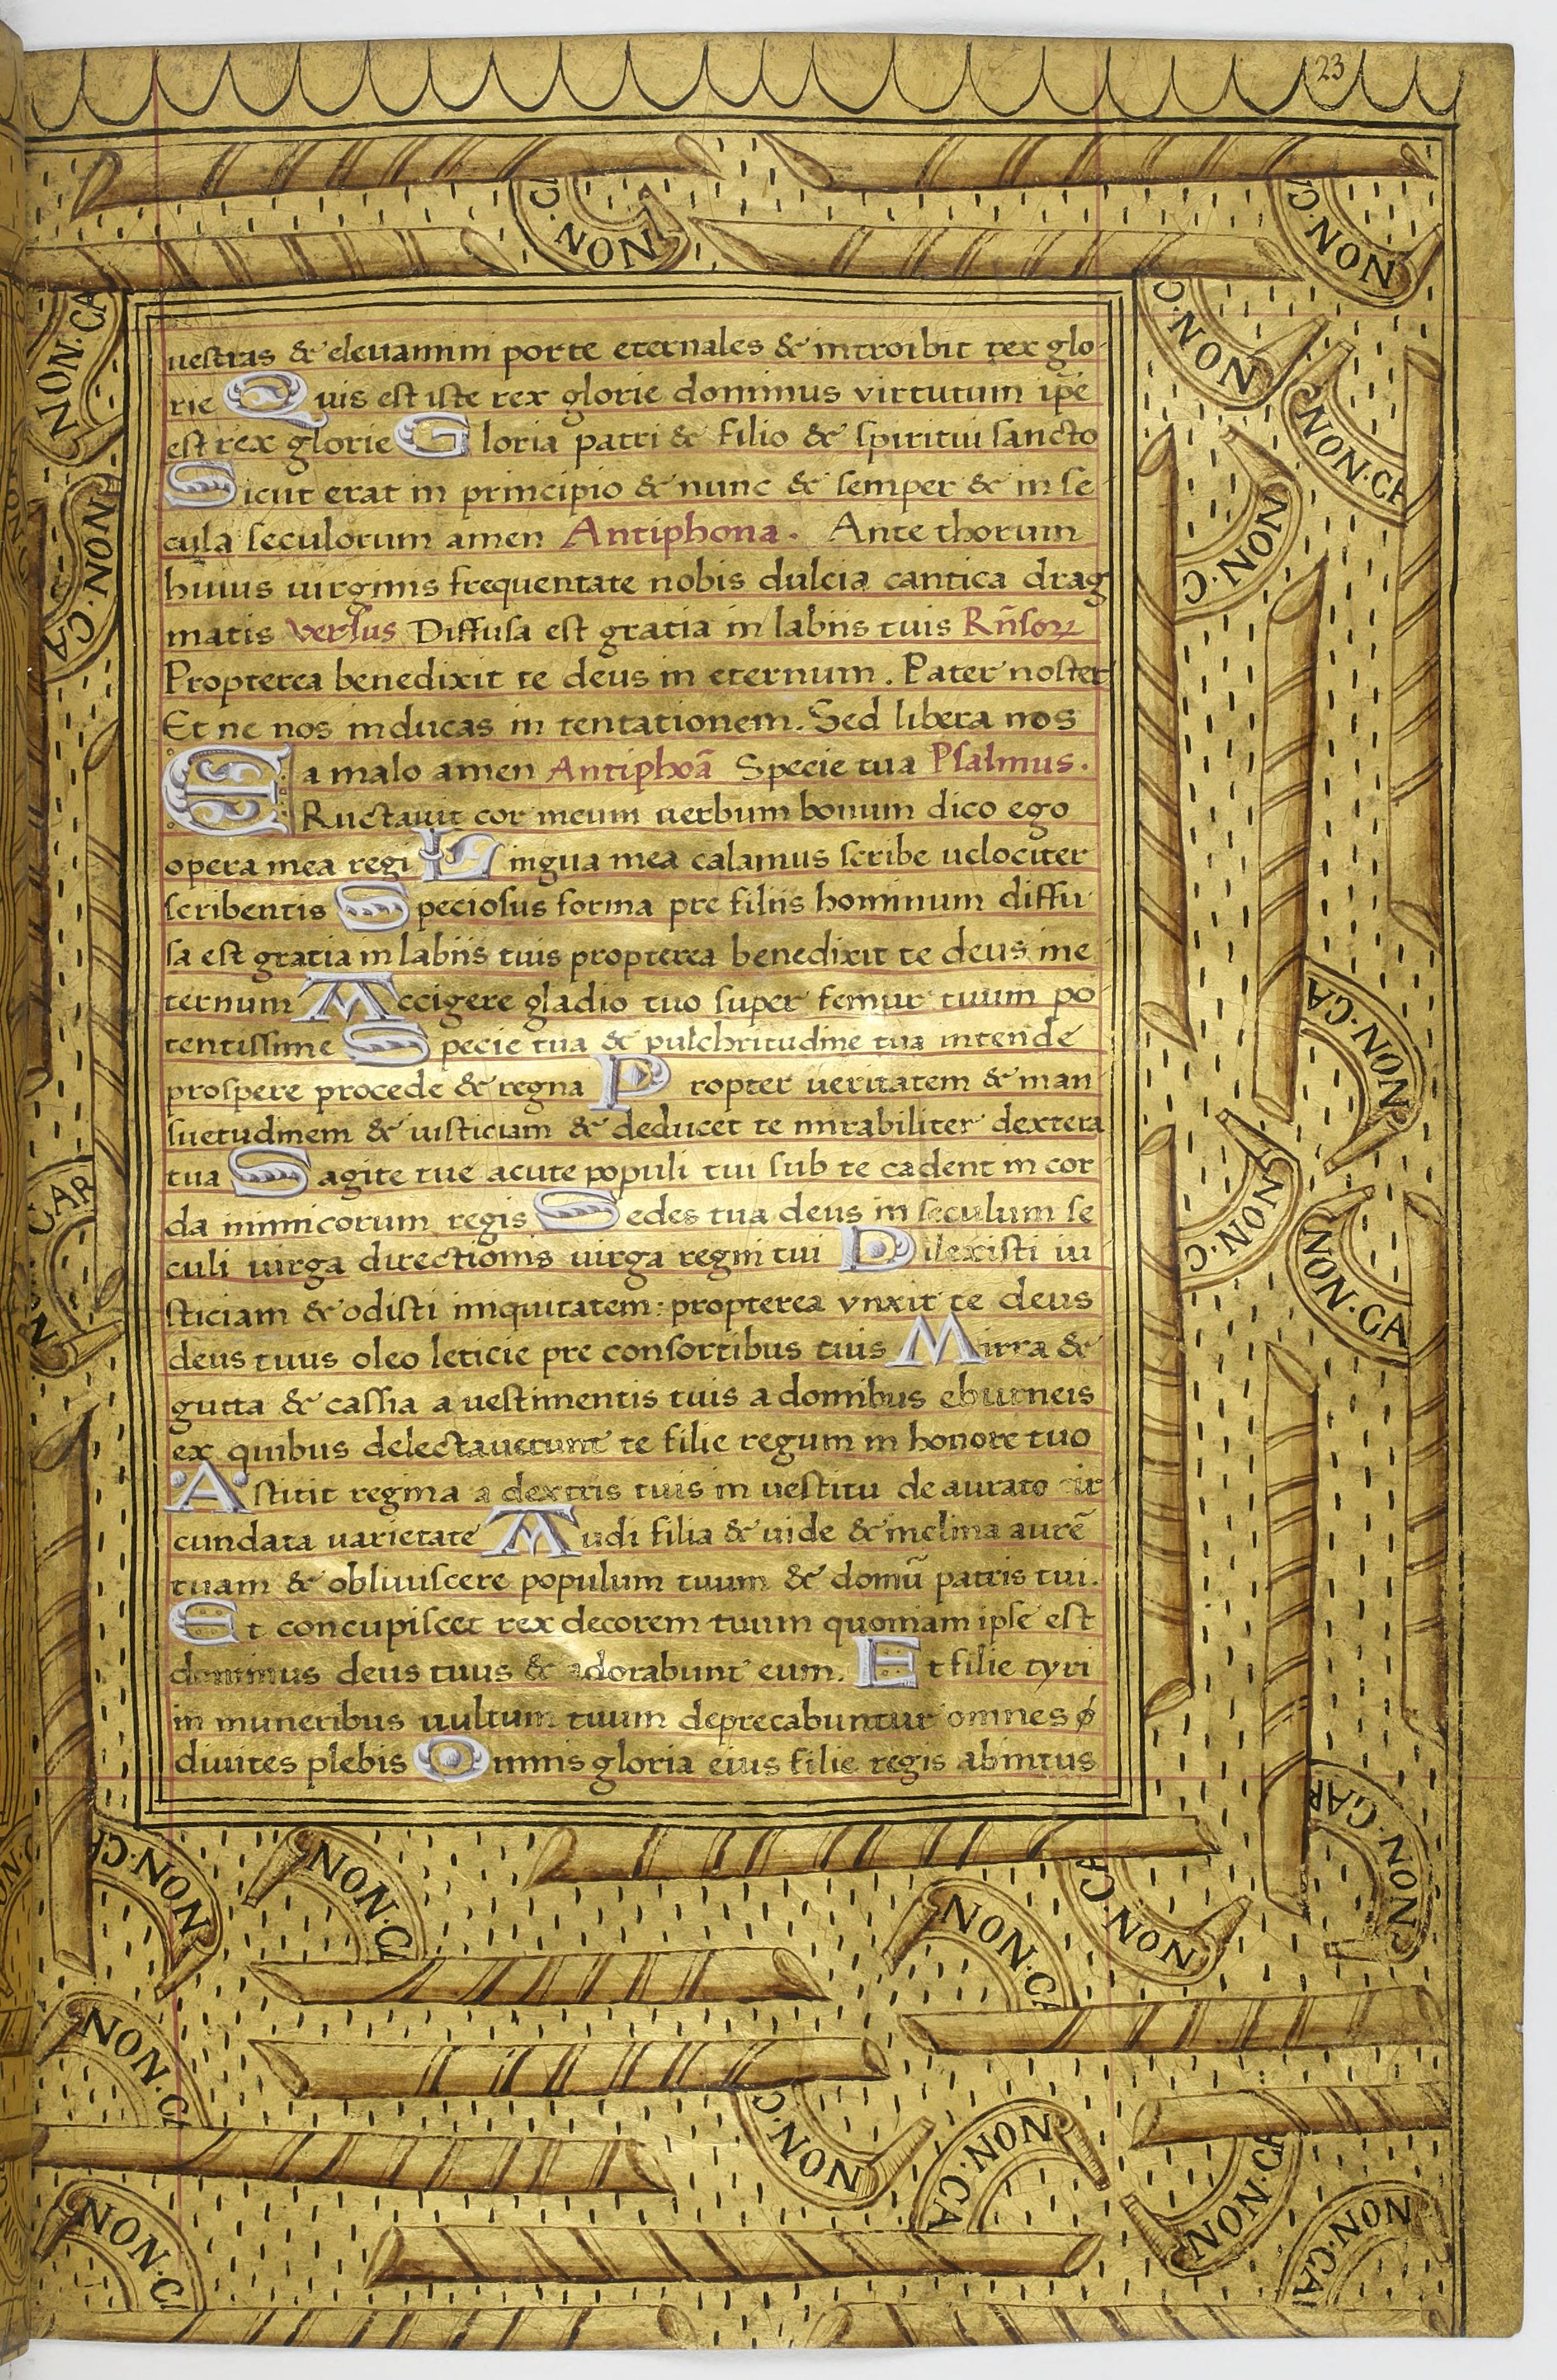 23
C·NON
C·NON
NON·CA
C·NON
NON·CA
NON·C
CA·NON
uestras & eleuamini porte eternales & introibit rex glo
rie Quis est iste rex glorie dominus virtutum ip̄e
est rex glorie Gloria patri & filio & spiritui sancto
Sicut erat in principio & nunc & semper & in se
cula seculorum amen Antiphona. Ante thorum
huius uirginis frequentate nobis dulcia cantica drag
matis versus Diffusa est gratia in labiis tuis Rn̄soꝝ
Propterea benedixit te deus in eternum. Pater noster
Et ne nos inducas in tentationem. Sed libera nos
a malo amen Antiphoā Specie tua Psalmus.
ERuctauit cor meum uerbum bonum dico ego
opera mea regi Lingua mea calamus scribe uelociter
scribentis Speciosus forma pre filiis hominum diffu
sa est gratia in labiis tuis propterea benedixit te deus in e
ternum Accigere gladio tuo super femur tuum po
tentissime Specie tua & pulchritudine tua intende
prospere procede & regna Propter ueritatem & man
suetudinem & iusticiam & deducet te mirabiliter dextera
tua Sagite tue acute populi tui sub te cadent in cor
da inimicorum regis Sedes tua deus in seculum se
culi uirga directionis uirga regni tui Dilexisti iu
sticiam & odisti iniquitatem: propterea vnxit te deus
deus tuus oleo leticie pre consortibus tuis Mirra &
gutta & cassia a uestimentis tuis a domibus eburneis
ex quibus delectauerunt te filie regum in honore tuo
Astitit regina a dextris tuis in uestitu deaurato cir
cundata uarietate Audi filia & uide & inclina aurē
tuam & obliuiscere populum tuum & domū patris tui.
Et concupiscet rex decorem tuum quoniam ipse est
dominus deus tuus & adorabunt eum. Et filie tyri
in muneribus uultum tuum deprecabuntur omnes
diuites plebis Omnis gloria eius filie regis abintus
CA·NON
NON·C
NON·CA
CAR
N
CAR·NON
CA·NON
NON·CA
NON·CA
CA·NON
NON·CA
C·NON
CA·NON
NON·CA
NON·C
CAR·NON